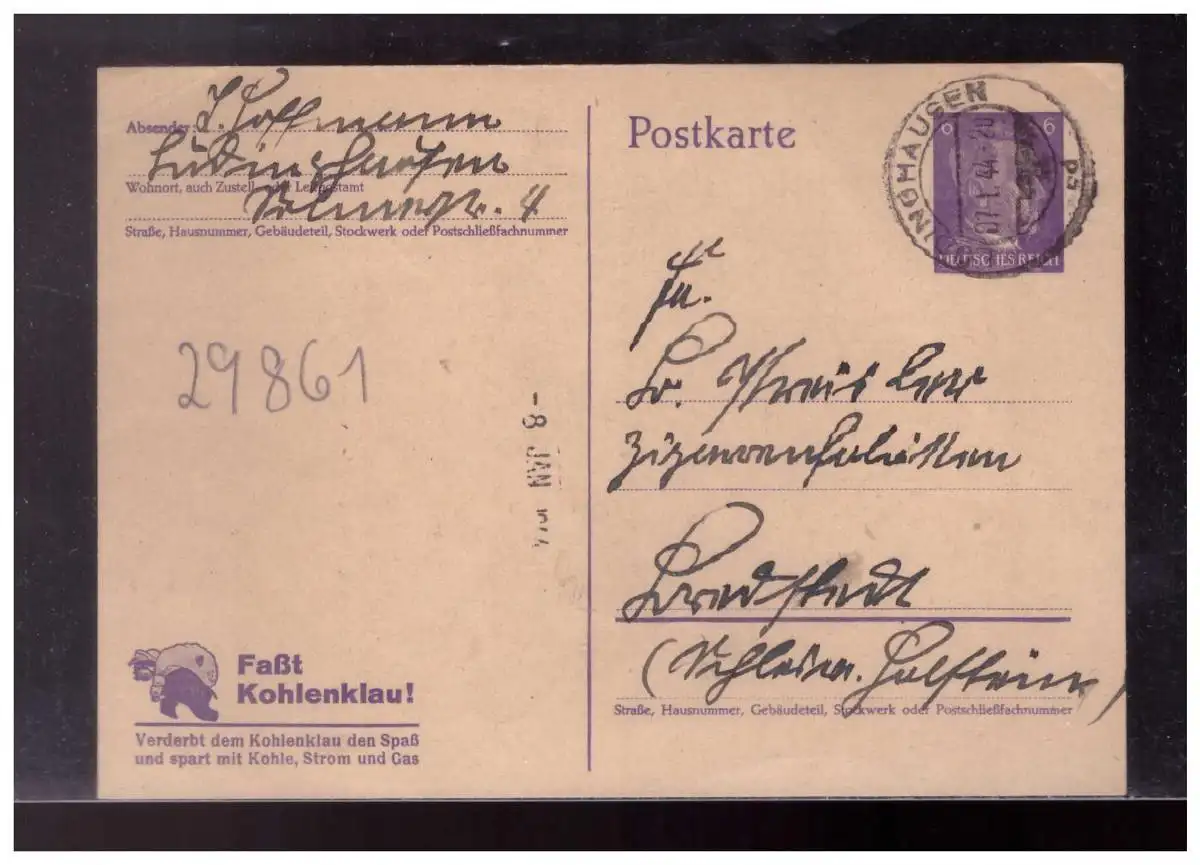 Absender: J. Hoffmann
Lüdinghausen
Wohnort, auch Zustell- oder Leitpostamt
4
Straße, Hausnummer, Gebäudeteil, Stockwerk oder Postschließfachnummer
Postkarte
6 6
LÜDINGHAUSEN
07.1.44.-20
DEUTSCHES REICH
Fa.
Zigarrenfabriken
Bredstedt
(Schlesw. Holstein)
Straße, Hausnummer, Gebäudeteil, Stockwerk oder Postschließfachnummer
29861
-8 JAN
Faßt
Kohlenklau!
Verderbt dem Kohlenklau den Spaß
und spart mit Kohle, Strom und Gas